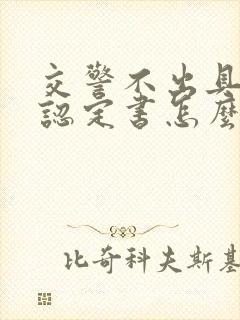 交警不出具
認定書怎麼
比奇科夫斯基